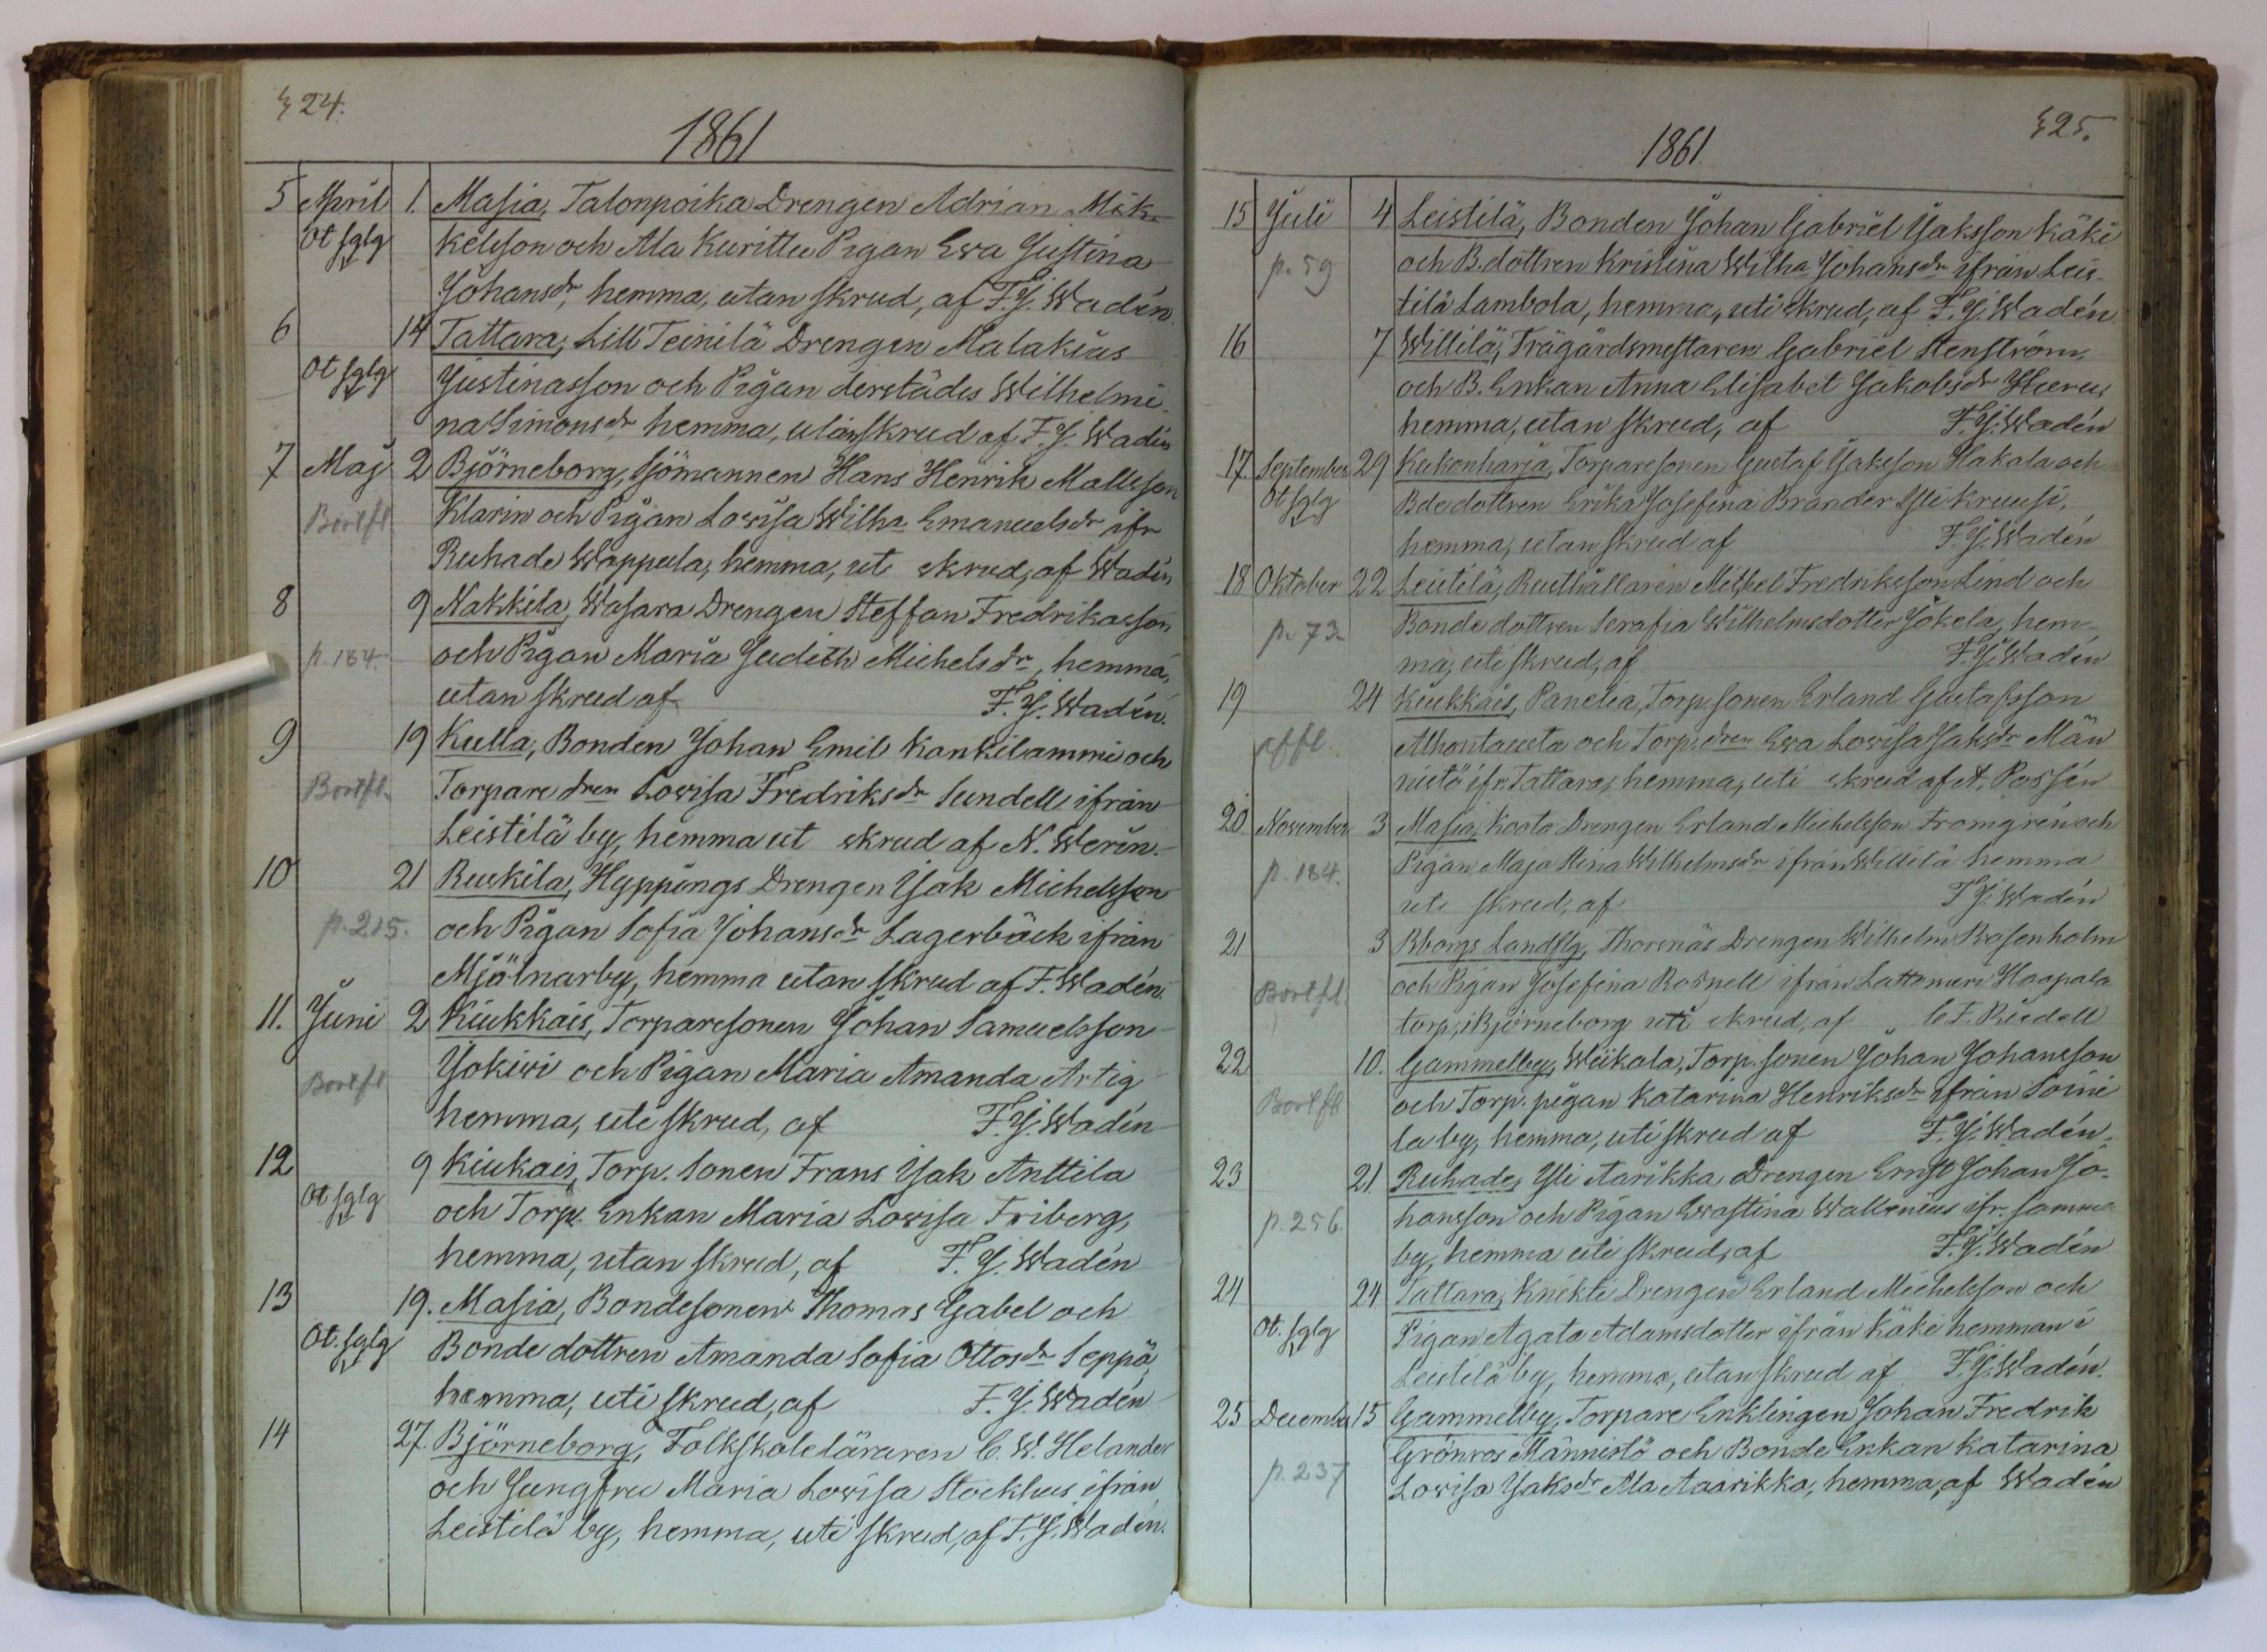 324.
1861
5 April 1. Masia, Talonpoika Drengen Adrian Mik-
Ot sglg kelsson och Ala Kurittu Pigan Ewa Justina
Johansdr, hemma, utan skrud, af F. J. Wadén.
6 14 Tattara, Lill Teinilä Drengen Malakias
Ot sglg Justinasson och Pigan derstädes Wilhelmi-
na Simonsdr hemma, utan skrud af F. J. Wadén
7 Maj 2 Björneborg, Sjömannen Hans Henrik Mattsson
Bortfl. Klarin och Pigan Lovisa Wilha Emanuelsdr ifr
Ruhade Wappula, hemma, uti skrud, af Wadén
8 9 Nakkila, Wasara Drengen Steffan Fredrikasson
p. 184. och Pigan Maria Judith Michelsdr, hemma,
utan skrud af F. J. Wadén.
9 19 Kulla, Bonden Johan Emil Kankilammi och
Bortfl. Torpare dren Lovisa Fredriksdr Sundell ifrån
Leistilä by, hemma ut skrud af N. Werin.
10 21 Ruskila, Hyppings Drengen Isak Michelsson
p. 215. och Pigan Sofia Johansdr Lagerbäck ifrån
Mjölnarby, hemma utan skrud af F. Wadén.
11. Juni 2 Kiukkais, Torparesonen Johan Samuelsson
Bortfl Jokivi och Pigan Maria Amanda Artig
hemma, uti skrud, af F. J. Wadén
12 9 Kiukais, Torp. Sonen Frans Isak Anttila
Ot sglg och Torp. Enkan Maria Lovisa Friberg,
hemma, utan skrud, af F. J. Wadén
13 19. Masia, Bondesonen Thomas Gabel och
Ot. sglg Bonde dottren Amanda Sofia Ottosdr Seppä,
hemma, uti skrud, af F. J. Wadén
14 27. Björneborg, Folkskoleläraren C. W. Helander
och Jungfru Maria Lovisa Stockhus ifrån
Leistilä by, hemma, uti skrud, af F. J. Wadén.
325.
1861
15 Juli 4 Leistilä, Bonden Johan Gabriel Isaksson Käki
p. 59 och B. dottren Kristina Wilha Johansdr ifrån Leis-
tilä Lambola, hemma, uti skrud, af F. J. Wadén.
16 7 Willilä, Trägårdsmestaren Gabriel Stenström
och B. Enkan Anna Elisabet Jakobsdr
hemma, utan skrud, af F. J. Wadén
17. September 29 Kukonharja, Torparesonen Gustaf Isaksson Hakala och
Ot sglg Bdedottren Erika Josefina Brander Yli Kruusi,
hemma, utan skrud af F. J. Wadén
18 Oktober 22 Leistilä, Rusthållaren Mickel Fredriksson Lind och
p. 73. Bonde dottren Serafia Wilhelmsdotter Jokela, hem-
ma, uti skrud, af F. J. Wadén
19 24 Kiukkais, Panelia, Torp. sonen Erland Gustafsson
Alhontausta och Torp. dren Ewa Lovisa Isaksdr Män
nistö ifr. Tattara, hemma, uti skrud af A. Possén
20 November 3 Masia, Koota Drengen Erland Michelsson Fromgrén och
p. 184. Pigan Maja Stina Wilhelmsdr ifrån Willilä hemma
uti skrud, af F J. Wadén
21 3 Bborgs Landsfg, Thorsnäs Drengen Wilhelm Rosenholm
Bortfl. och Pigan Josefina Rosnell ifrån Lattomeri Haapala
torp, i Björneborg uti skrud, af C. F. Riedell
22 10. Gammelby, Weikola, Torp. sonen Johan Johansson
Bortfl och Torp. pigan Katarina Henriksdr ifrån Soini
la by, hemma, uti skrud af F. J. Wadén.
23 21. Ruhade, Yli Aarikka Drengen Ernst Johan Jo-
p. 256. hansson och Pigan Ewastina Wallenius ifr. samma
by, hemma uti skrud, af F. J. Wadén
24 24 Tattara, Knekti Drengen Erland Michelsson och
Ot. sglg Pigan Agata Adamsdotter ifrån Käki hemman i
Leistilä by, hemma, utan skrud af F. J. Wadén.
25 December 15 Gammelby, Torpare Enklingen Johan Fredrik
Grönros Männistö och Bonde Enkan Katarina
p. 237 Lovisa Isaksdr Ala Aarikka, hemma, af Wadén